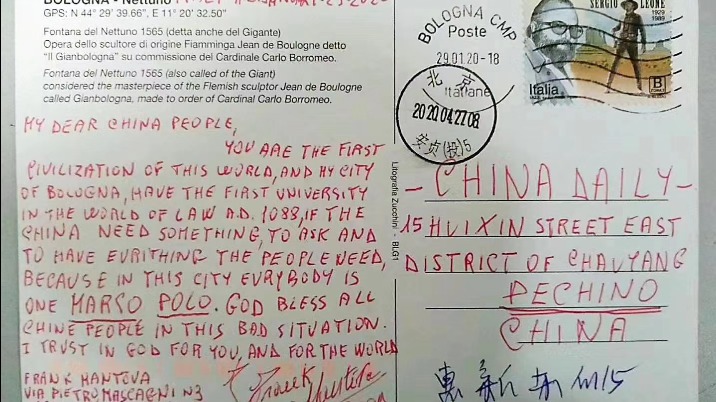 BOLOGNA - Nettuno
GPS: N 44° 29' 39.66", E 11° 20' 32.50"
Fontana del Nettuno 1565 (detta anche del Gigante)
Opera dello scultore di origine Fiamminga Jean de Boulogne detto
"Il Gianbologna" su commissione del Cardinale Carlo Borromeo.
Fontana del Nettuno 1565 (also called of the Giant)
considered the masterpiece of the Flemish sculptor Jean de Boulogne
called Gianbologna, made to order of Cardinal Carlo Borromeo.
MY DEAR CHINA PEOPLE,
YOU ARE THE FIRST
CIVILIZATION OF THIS WORLD, AND MY CITY
OF BOLOGNA, HAVE THE FIRST UNIVERSITY
IN THE WORLD OF LAW A.D. 1088, IF THE
CHINA NEED SOMETHING, TO ASK AND
TO HAVE EVRITHING THE PEOPLE NEED,
BECAUSE IN THIS CITY EVRYBODY IS
ONE MARCO POLO. GOD BLESS ALL
CHINE PEOPLE IN THIS BAD SITUATION.
I TRUST IN GOD FOR YOU, AND FOR THE WORLD
FRANK MANTOVA
VIA PIETRO MASCAGNI N3
Litografia Zucchini - BLG1
BOLOGNA CMP
Poste
29.01.20-18
Italiane
北京
2020 04 27 08
安贞(投)5
SERGIO LEONE
1929
1989
Italia
B
- CHINA DAILY -
15 HUIXIN STREET EAST
DISTRICT OF CHAUYANG
PECHINO
CHINA
惠新东街15